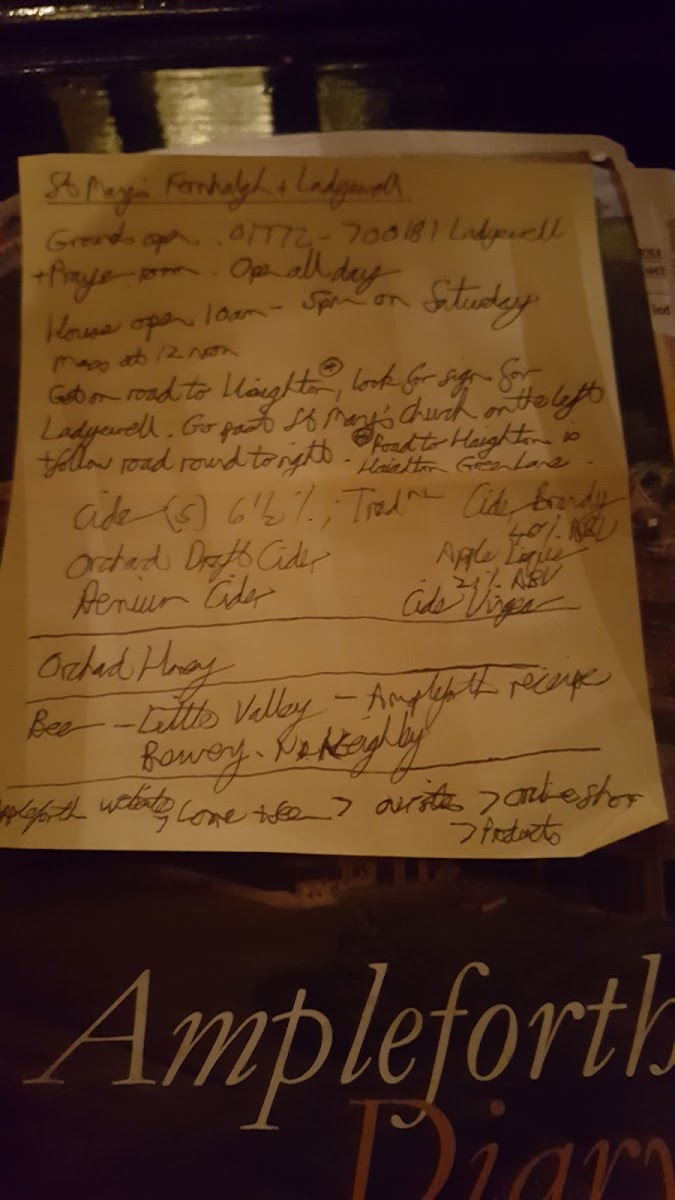 St Mary's Fernhalgh + Ladyewell
Grounds open. 01772-700181 Ladyewell
+ Prayer room. Open all day
House open 10am - 5pm on Saturday
Mass at 12 noon
Get on road to Haighton ⊕, look for sign for
Ladyewell. Go past St Mary's church on the left
+ follow road round to right. ⊕ Road to Haighton is
Haighton Green Lane.
Cider (s) 6½%, Trad
Cider Brandy
40% ABV
Orchard Draft Cider
Apple Liqueur
21% ABV
Premium Cider
Cider Vinegar
Orchard Honey
Beer - Little Valley - Ampleforth receipe
Brewery. Keighley
Ampleforth website > Come + See > > online shop
> Products
Ampleforth
Diary